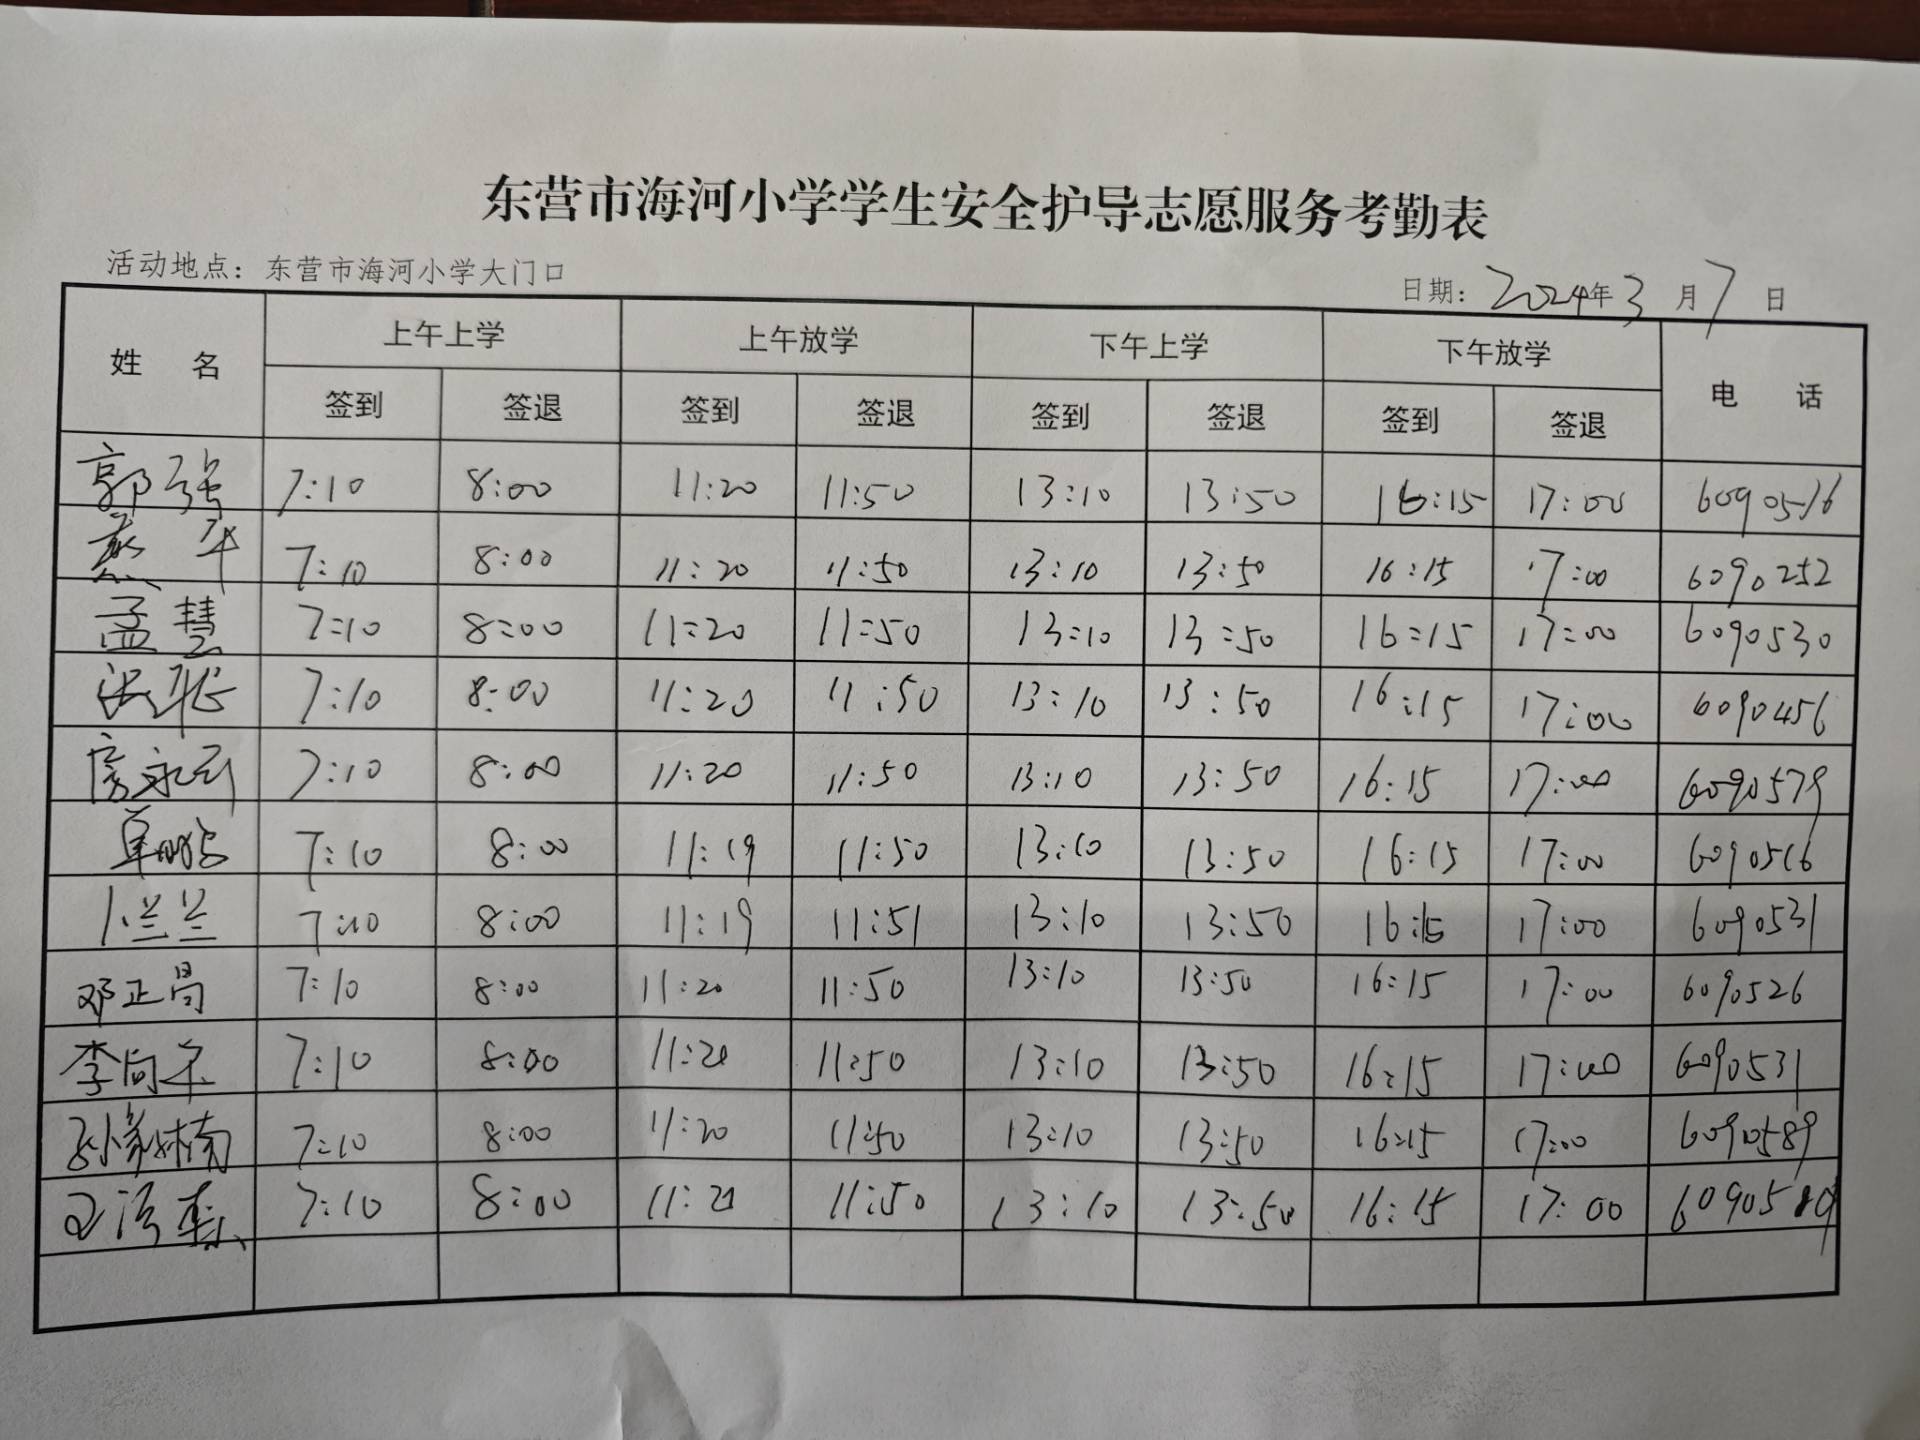 东营市海河小学学生安全护导志愿服务考勤表
活动地点：东营市海河小学大门口 日期：2024年3月7日
姓 名 上午上学 上午放学 下午上学 下午放学 电 话
签到 签退 签到 签退 签到 签退 签到 签退
郭强 7:10 8:00 11:20 11:50 13:10 13:50 16:15 17:00 6090516
7:10 8:00 11:20 11:50 13:10 13:50 16:15 17:00 6090252
孟慧 7:10 8:00 11:20 11:50 13:10 13:50 16:15 17:00 6090530
7:10 8:00 11:20 11:50 13:10 13:50 16:15 17:00 6090456
7:10 8:00 11:20 11:50 13:10 13:50 16:15 17:00 6090579
7:10 8:00 11:19 11:50 13:10 13:50 16:15 17:00 6090516
卜兰兰 7:10 8:00 11:19 11:51 13:10 13:50 16:15 17:00 6090531
邓正昌 7:10 8:00 11:20 11:50 13:10 13:50 16:15 17:00 6090526
7:10 8:00 11:20 11:50 13:10 13:50 16:15 17:00 6090531
7:10 8:00 11:20 11:50 13:10 13:50 16:15 17:00 6090589
7:10 8:00 11:21 11:50 13:10 13:50 16:15 17:00